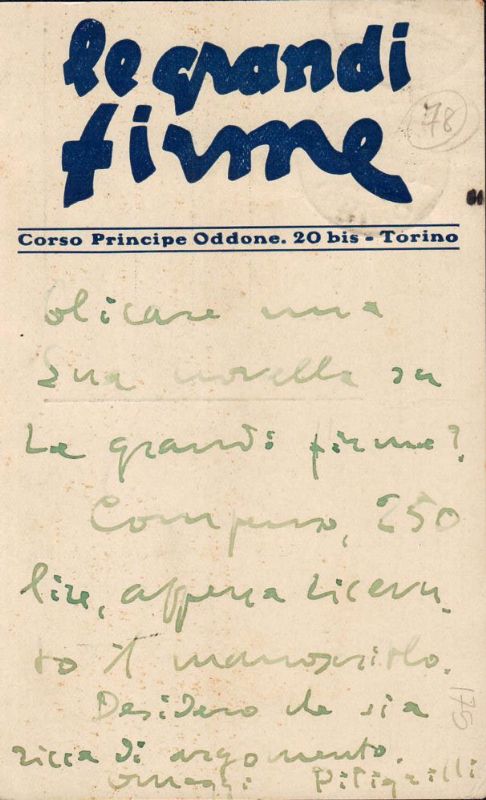 le grandi
firme
78
Corso Principe Oddone. 20 bis - Torino
blicare una
Sua novella su
Le grandi firme?
Compenso, 250
lire, appena ricevu-
to il manoscritto.
Desidero che sia
ricca di argomento.
omaggi Pitigrilli
175